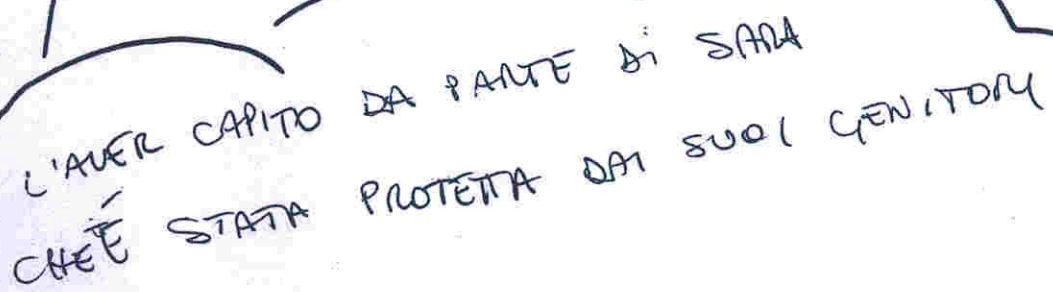 L'AVER CAPITO DA PARTE DI SARA
CHE É STATA PROTETTA DAI SUOI GENITORI